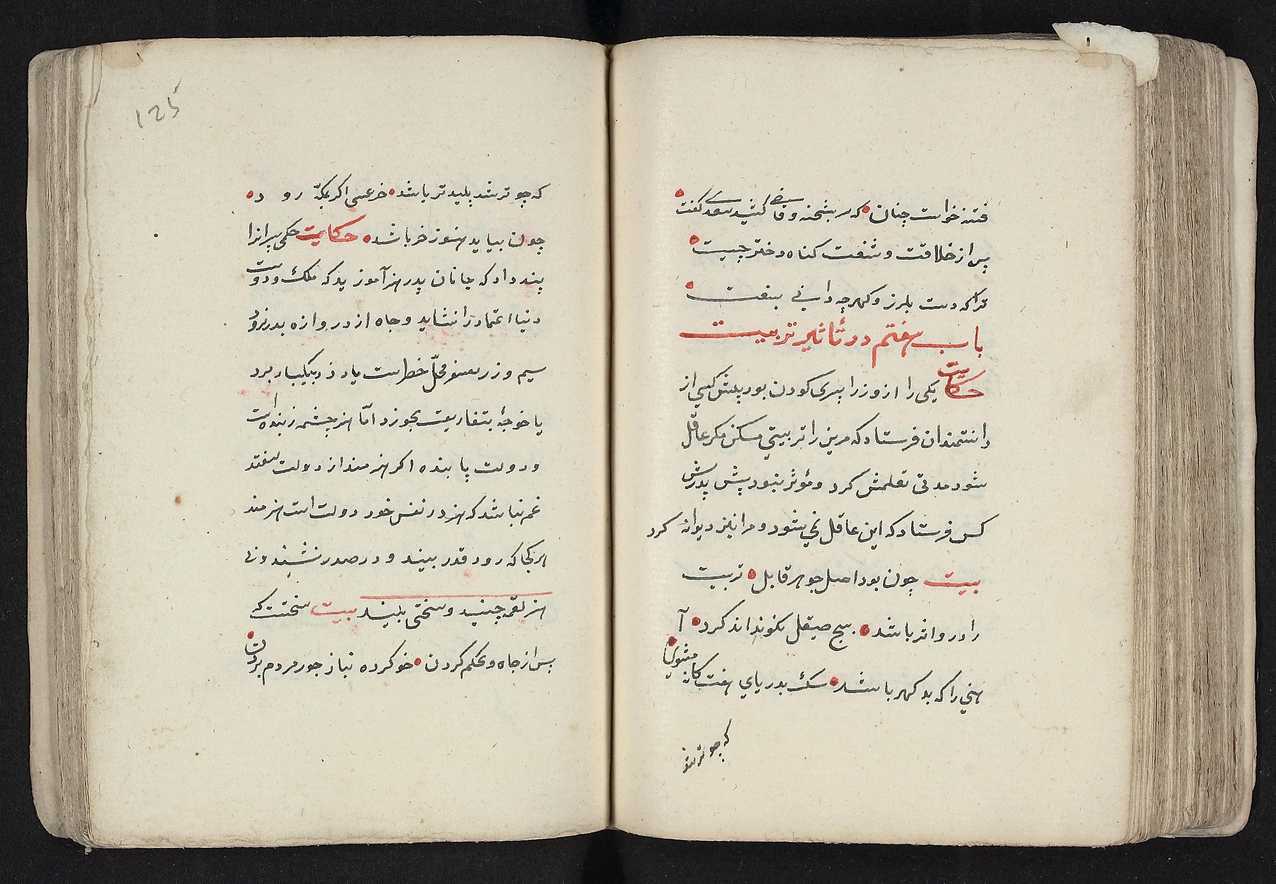 فتنه خواست چنان که سر بشحنه و قاضی کشید سعدی گفت
پس از خلافت و شنعت کناه دختر چیست
ترا که دست بلرزد کهر چه دانی سفت
باب هفتم در تأثیر تربیت
حکایت یکی را از وزرا پسری کودن بود پیش یکی از
دانشمندان فرستاد که مرین را تربیتی میکن مکر عاقل
شود مدتی تعلیمش کرد و مؤثر نبود پیش پدرش
کس فرستاد که این عاقل نمی شود و مرا نیز دیوانه کرد
بیت چون بود اصل جوهر قابل تربیت
را درو اثر باشد هیچ صیقل نکو نداند کرد آ
هنی را که بد کهر باشد سک بدریای هفت کانه مشوی
که جو تر شد
125
که جو تر شد پلیدتر باشد خر عیسی اکر بمکه رود
چون بیاید هنوز خر باشد حکایت حکمی پسرانرا
پند داد که جانان پدر هنر آموزید که ملک و دولت
دنیا اعتماد را نشاید و جاه از دروازه بدر نرود
سیم و زر بسفر محلّ خطر است یا دزد بیکبار ببرد
یا خواجه بتفاریق بخورد امّا هنر چشمه زنده است
و دولت پاینده اکر هنرمند از دولت بیفتد
غم نباشد که هنر در نفس خود دولت است هنرمند
هر کجا که رود قدر بیند و در صدر نشیند و بی
هنر لقمه چیند و سختی بیند بیت سختست که
پس از جاه و تحکم کردن خو کرده بناز جور مردم بردن